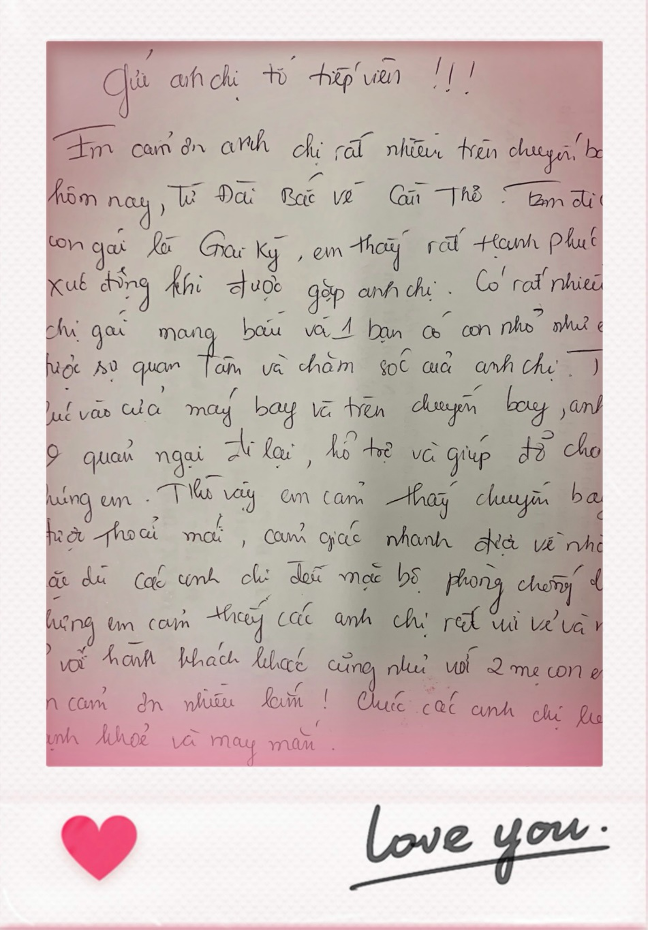 Gửi anh chị tổ tiếp viên !!!
Em cảm ơn anh chị rất nhiều trên chuyến b
hôm nay, Từ Đài Bắc về Cần Thơ. Em đi
con gái là Gia Kỳ, em thấy rất hạnh phúc
xúc động khi được gặp anh chị. Có rất nhiều
chị gái mang bầu và 1 bạn có con nhỏ như e
được sự quan tâm và chăm sóc của anh chị. T
lúc vào cửa máy bay và trên chuyến bay, anh
quản ngại đi lại, hỗ trợ và giúp đỡ cho
húng em. Nhờ vậy em cảm thấy chuyến ba
được thoải mái, cảm giác nhanh được về nhà
ặc dù các anh chị đều mặc bộ phòng chống d
hưng em cảm thấy các anh chị rất vui vẻ và n
với hành khách khác cũng như với 2 mẹ con e
m cảm ơn nhiều lắm! Chúc các anh chị lu
ạnh khoẻ và may mắn.
love you.